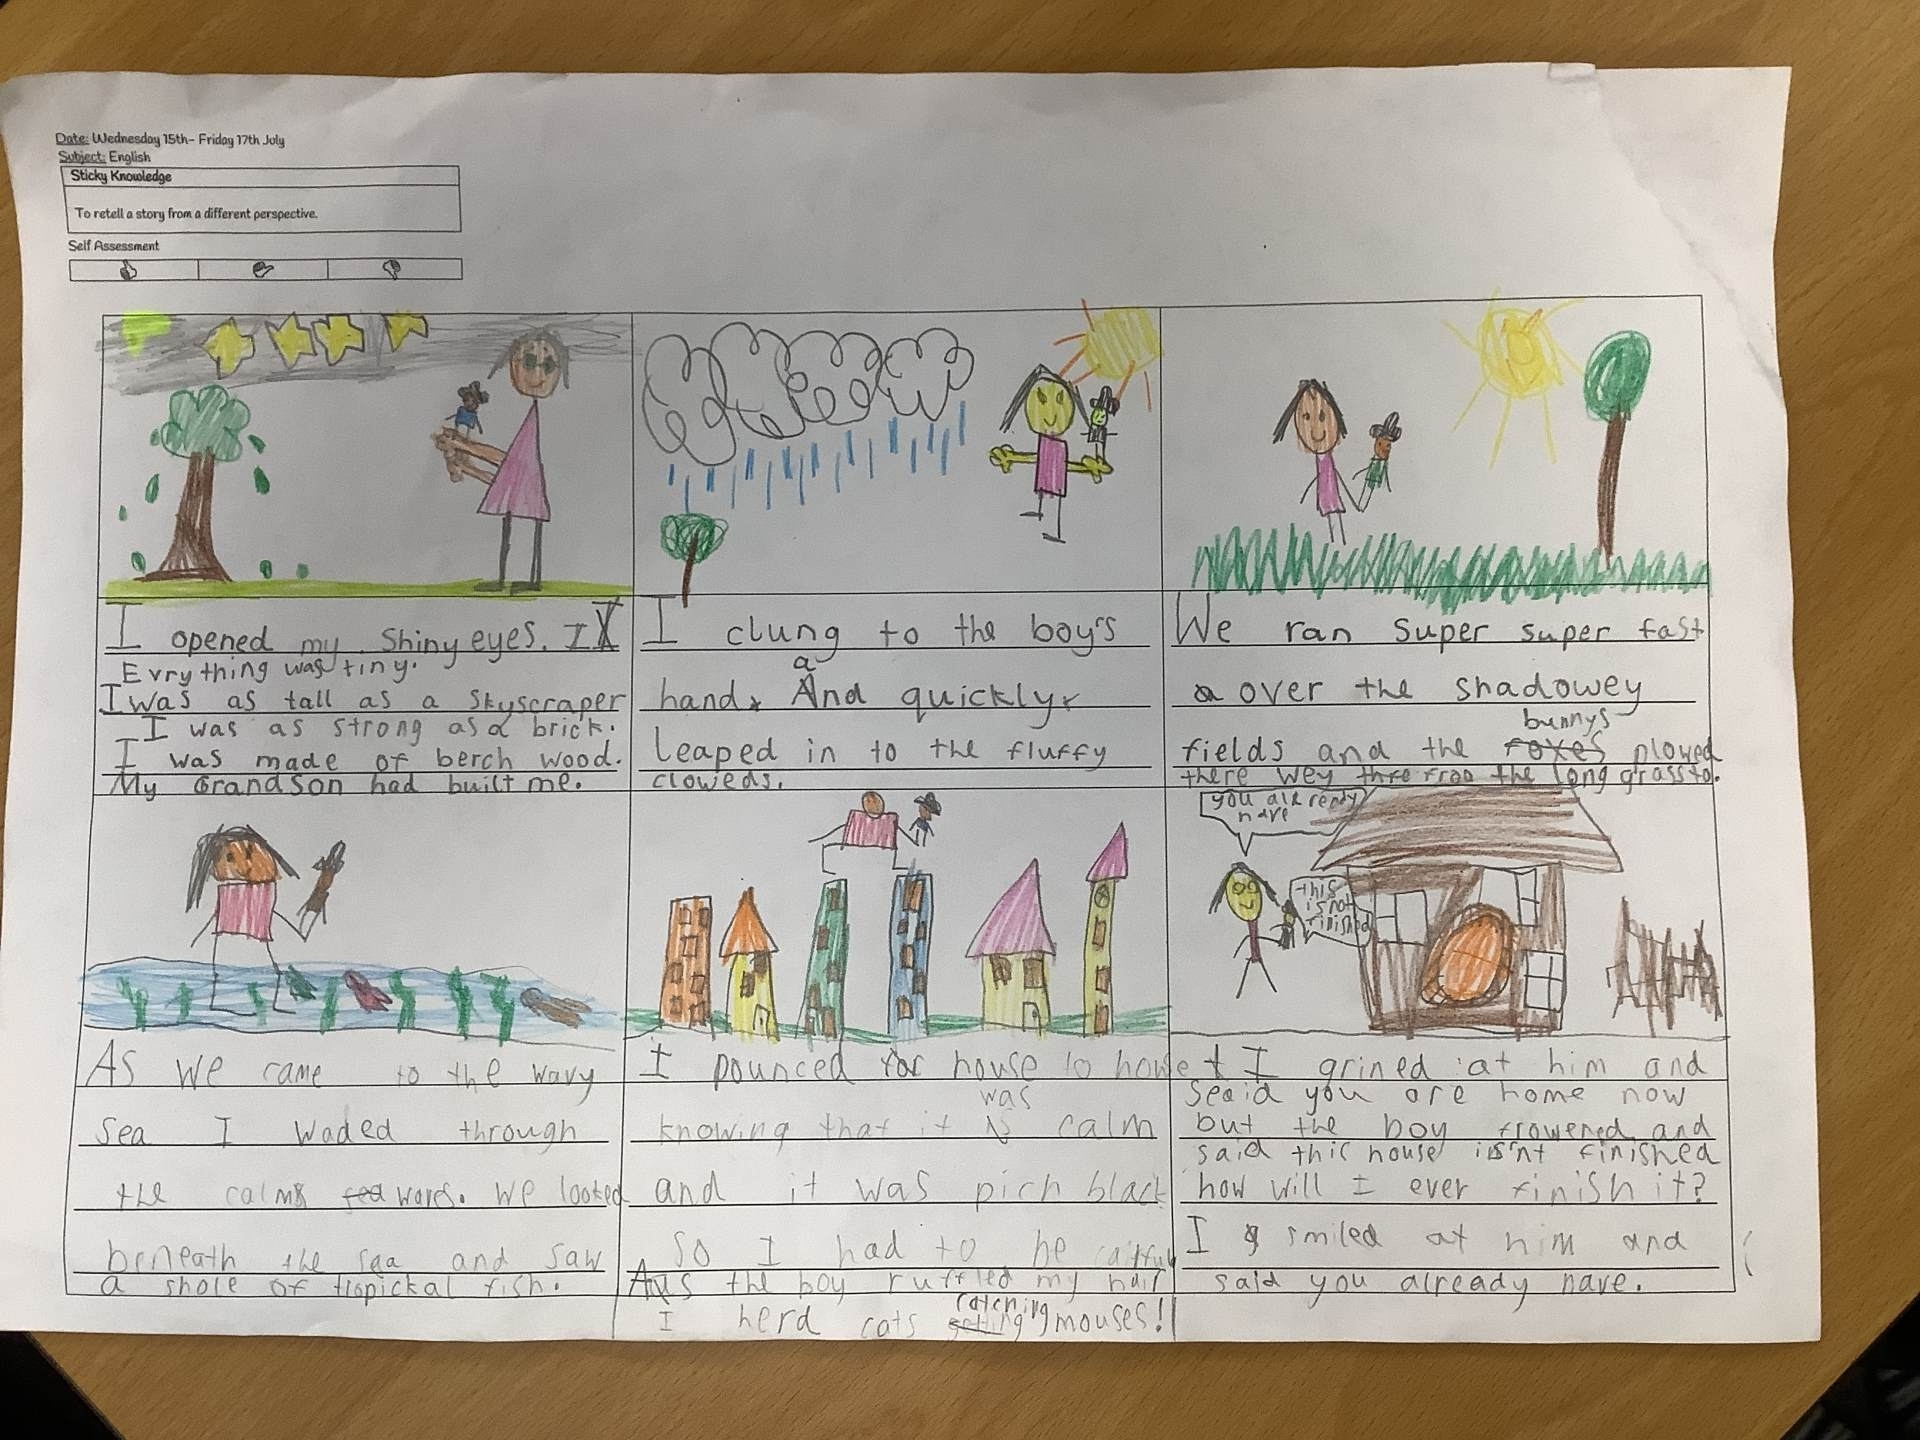 Date: Wednesday 15th- Friday 17th July
Subject: English
Sticky Knowledge
To retell a story from a different perspective.
Self Assessment
I opened my Shiny eyes. I
Evrything was tiny.
I was as tall as a skyscraper
I was as strong as a brick.
I was made of berch wood.
My Grandson had built me.
I clung to the boy's
a
hand. And quickly
leaped in to the fluffy
cloweds.
We ran super super fast
over the shadowey
bunnys
fields and the foxes plowed
there wey threw the long grass to.
As we came to the wavy
sea I waded through
the calm waves. We looked
beneath the sea and saw
a shole of tropickal fish.
I pounced for house to house
was
knowing that it is calm
and it was pich black
so I had to be
As the boy ruffled my hair
catching
I herd cats getting mouses!
you already
have
this
is not
finished
I grined at him and
seaid you are home now
but the boy frowered and
said this house isn't finished
how will I ever finish it?
I smiled at him and
said you already have.